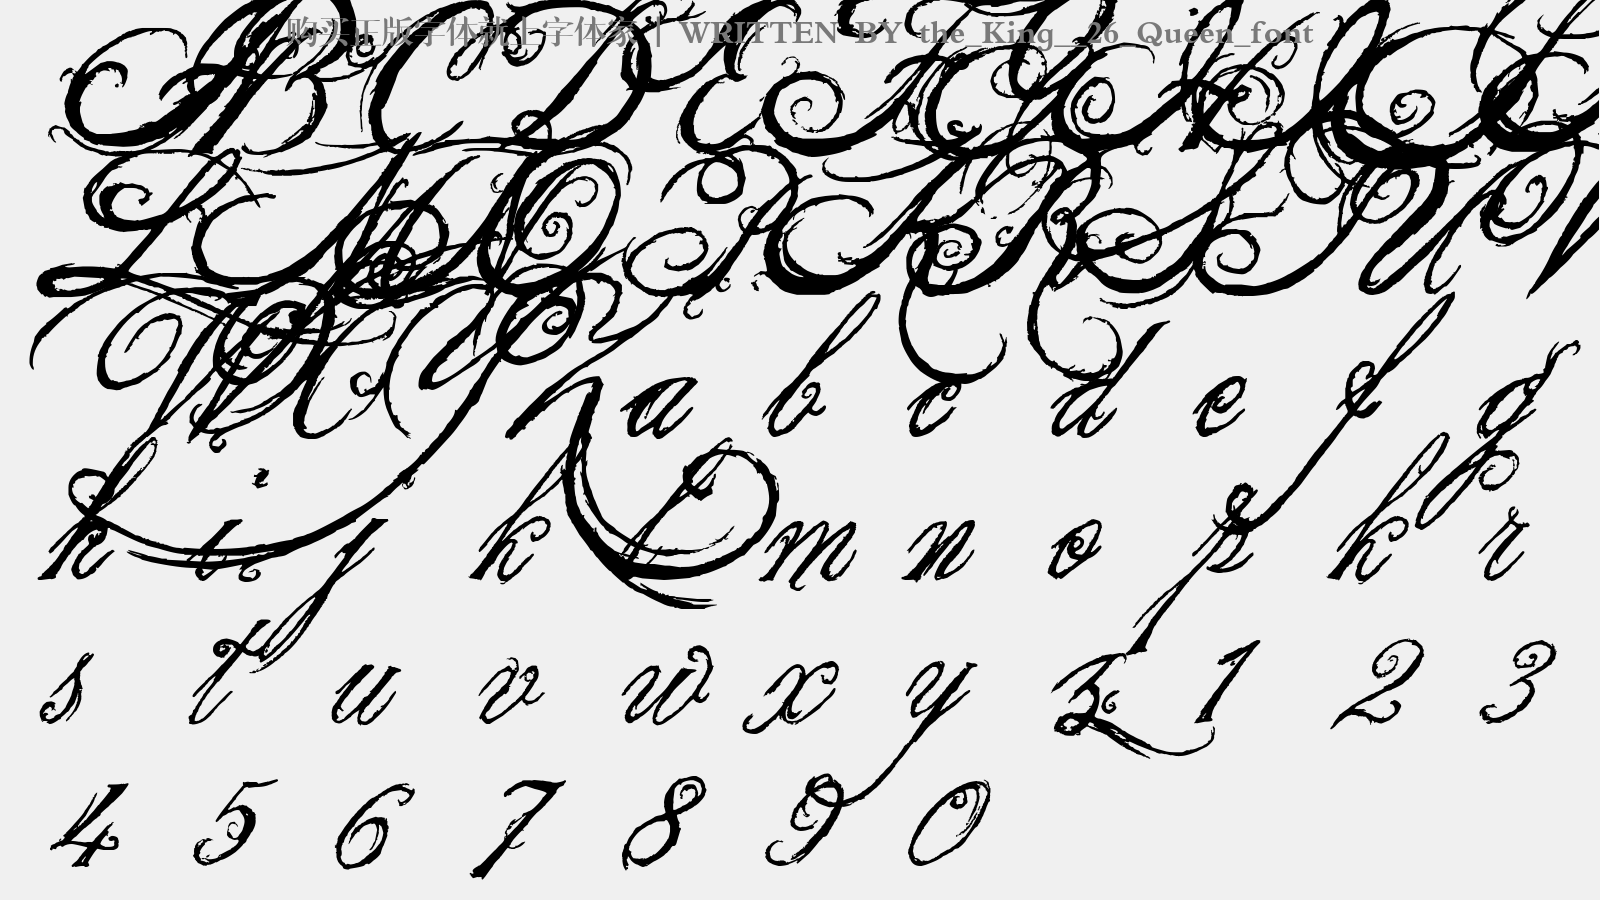 购买正版字体就上字体家 | WRITTEN BY the_King__26_Queen_font
A B C D E F G H I J K
L M N O P Q R S T U V
W X Y Z a b c d e f g
h i j k l m n o p q r
s t u v w x y z 1 2 3
4 5 6 7 8 9 0